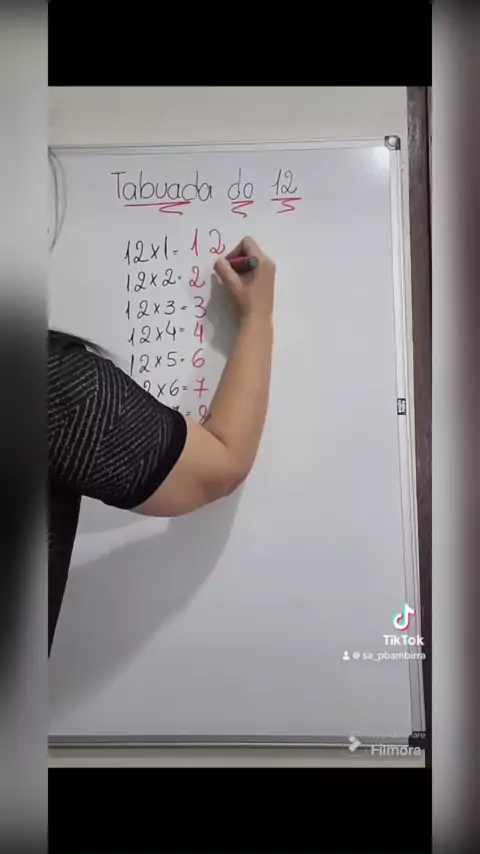 Tabuada do 12
12x1= 12
12x2= 2
12x3= 3
12x4= 4
12x5= 6
2x6= 7
TikTok
@sa_pbambirra
Filmora